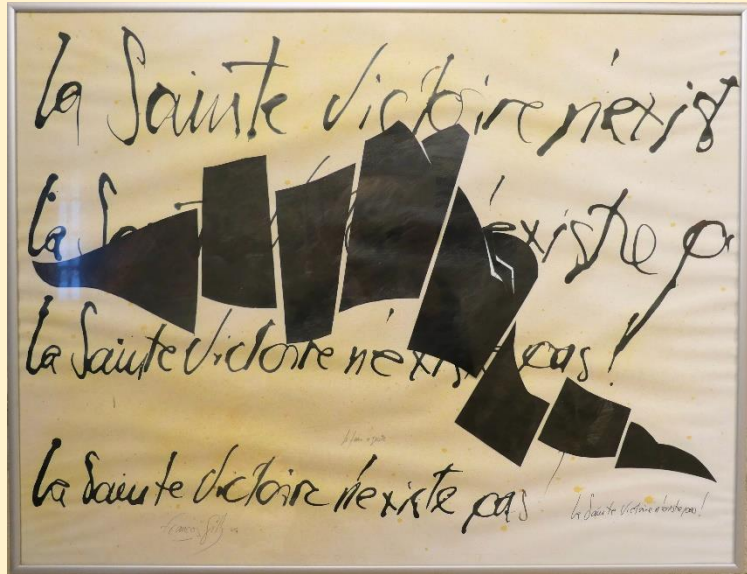 la Sainte Victoire n'exist
la Sa n'existe p
la Sainte Victoire n'existe pas!
la Sainte Victoire n'existe pas
la Sainte Victoire n'existe pas!